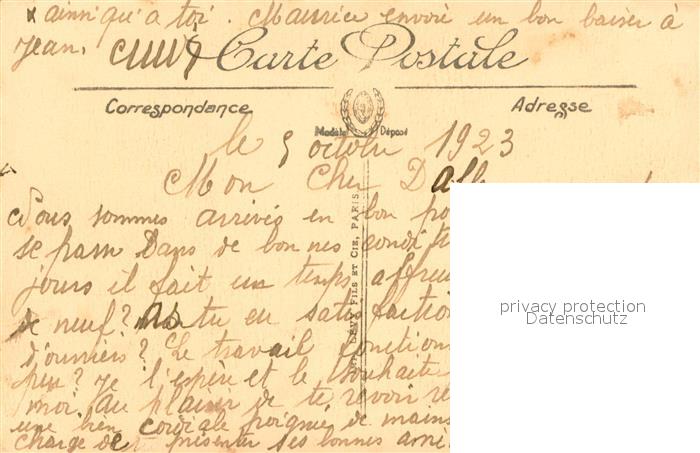 x ainsi qu'a toi. Maurice envoie un bon baiser à
Jean.
Carte Postale
Correspondance
Adresse
Modèle Déposé
le 5 octobre 1923
Mon Cher
Nous sommes arrivés en bon
se passa Dans de bonnes
jours il fait un temps
de neuf? As tu eu
d'ouvriers? Le travail
peu? Je l'espère et le souhaite
moi au plaisir de te revoir
une bien cordiale poignée de mains
charge de présenter ses bonnes
LÉVY FILS ET CIE, PARIS
privacy protection
Datenschutz